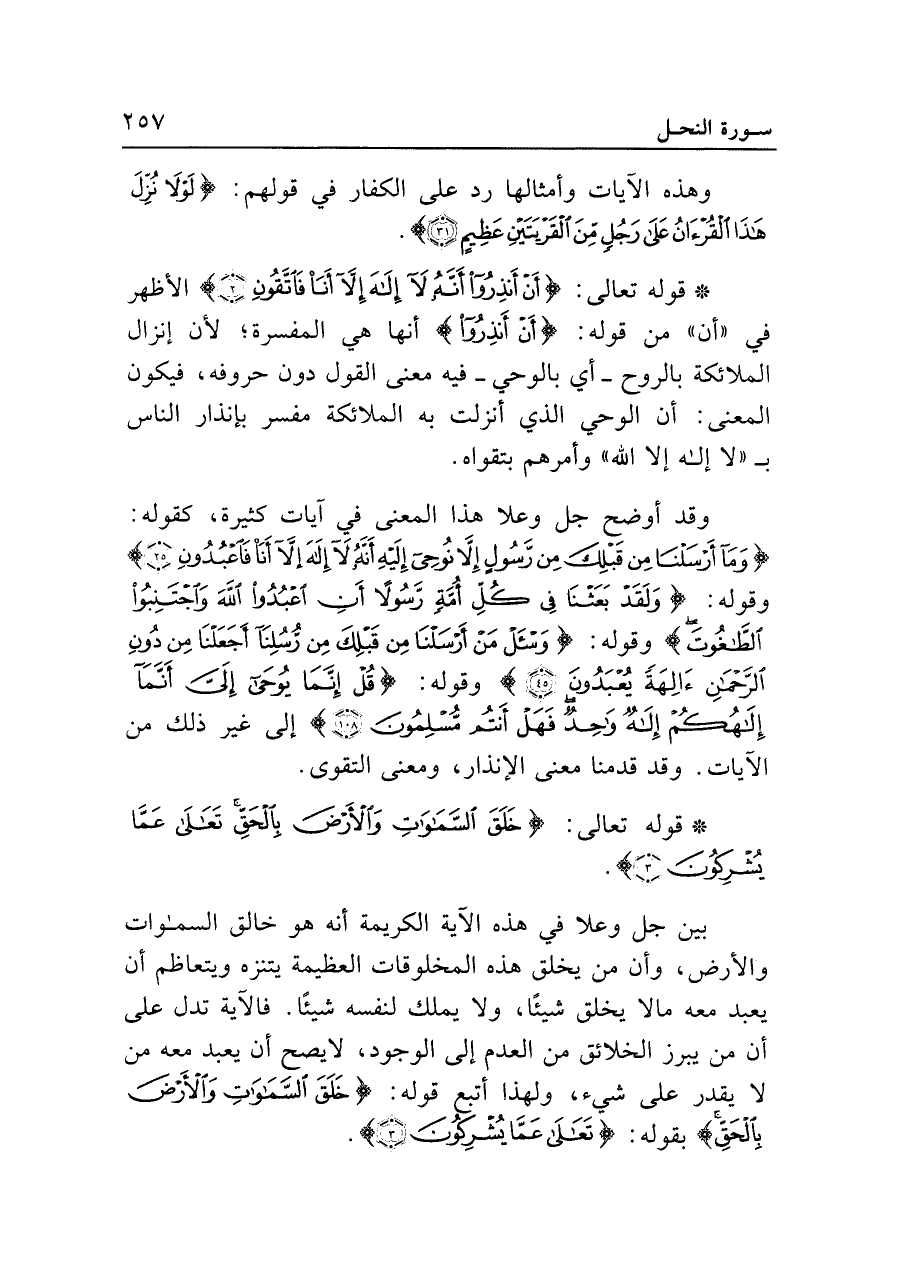 سورة النحل ٢٥٧
وهذه الآيات وأمثالها رد على الكفار في قولهم: ﴿لَوْلَا نُزِّلَ
هَٰذَا ٱلْقُرْءَانُ عَلَىٰ رَجُلٍ مِّنَ ٱلْقَرْيَتَيْنِ عَظِيمٍ ٣١﴾.
* قوله تعالى: ﴿أَنْ أَنذِرُوٓا۟ أَنَّهُۥ لَآ إِلَٰهَ إِلَّآ أَنَا۠ فَٱتَّقُونِ ٢﴾ الأظهر
في «أن» من قوله: ﴿أَنْ أَنذِرُوٓا۟﴾ أنها هي المفسرة؛ لأن إنزال
الملائكة بالروح ـ أي بالوحي ـ فيه معنى القول دون حروفه، فيكون
المعنى: أن الوحي الذي أنزلت به الملائكة مفسر بإنذار الناس
بـ «لا إلٰه إلا الله» وأمرهم بتقواه.
وقد أوضح جل وعلا هذا المعنى في آيات كثيرة، كقوله:
﴿وَمَآ أَرْسَلْنَا مِن قَبْلِكَ مِن رَّسُولٍ إِلَّا نُوحِىٓ إِلَيْهِ أَنَّهُۥ لَآ إِلَٰهَ إِلَّآ أَنَا۠ فَٱعْبُدُونِ ٢٥﴾
وقوله: ﴿وَلَقَدْ بَعَثْنَا فِى كُلِّ أُمَّةٍ رَّسُولًا أَنِ ٱعْبُدُوا۟ ٱللَّهَ وَٱجْتَنِبُوا۟
ٱلطَّٰغُوتَۖ﴾ وقوله: ﴿وَسْـَٔلْ مَنْ أَرْسَلْنَا مِن قَبْلِكَ مِن رُّسُلِنَآ أَجَعَلْنَا مِن دُونِ
ٱلرَّحْمَٰنِ ءَالِهَةً يُعْبَدُونَ ٤٥﴾ وقوله: ﴿قُلْ إِنَّمَا يُوحَىٰٓ إِلَىَّ أَنَّمَآ
إِلَٰهُكُمْ إِلَٰهٌ وَٰحِدٌۖ فَهَلْ أَنتُم مُّسْلِمُونَ ١٠٨﴾ إلى غير ذلك من
الآيات. وقد قدمنا معنى الإنذار، ومعنى التقوى.
* قوله تعالى: ﴿خَلَقَ ٱلسَّمَٰوَٰتِ وَٱلْأَرْضَ بِٱلْحَقِّۚ تَعَٰلَىٰ عَمَّا
يُشْرِكُونَ ٣﴾.
بين جل وعلا في هذه الآية الكريمة أنه هو خالق السمٰوات
والأرض، وأن من يخلق هذه المخلوقات العظيمة يتنزه ويتعاظم أن
يعبد معه مالا يخلق شيئًا، ولا يملك لنفسه شيئًا. فالآية تدل على
أن من يبرز الخلائق من العدم إلى الوجود، لايصح أن يعبد معه من
لا يقدر على شيء، ولهذا أتبع قوله: ﴿خَلَقَ ٱلسَّمَٰوَٰتِ وَٱلْأَرْضَ
بِٱلْحَقِّۚ﴾ بقوله: ﴿تَعَٰلَىٰ عَمَّا يُشْرِكُونَ ٣﴾.